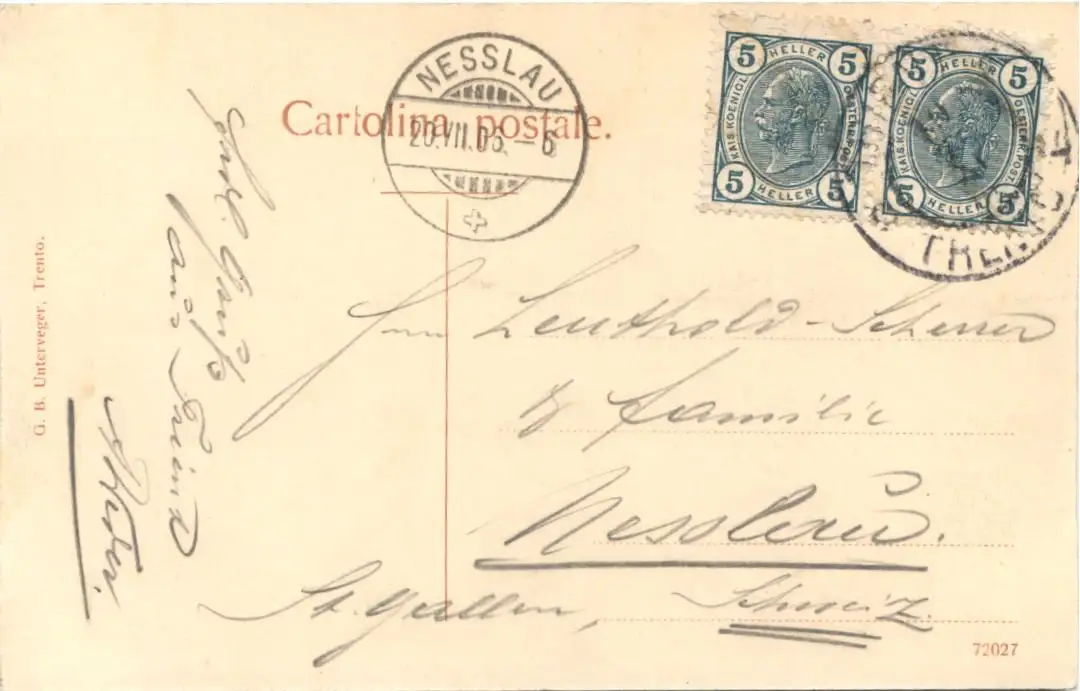 Cartolina postale.
NESSLAU
20.VII.06.–6
5 HELLER 5
KAIS. KOENIGL. OESTERR. POST
5 HELLER 5
5 HELLER 5
KAIS. KOENIGL. OESTERR. POST
5 HELLER 5
TRE
Herzl. Gruß
aus Trient
G. B. Unterveger, Trento.
Leuthold-Scherrer
& Familie
Nesslau.
St. Gallen, Schweiz.
72027